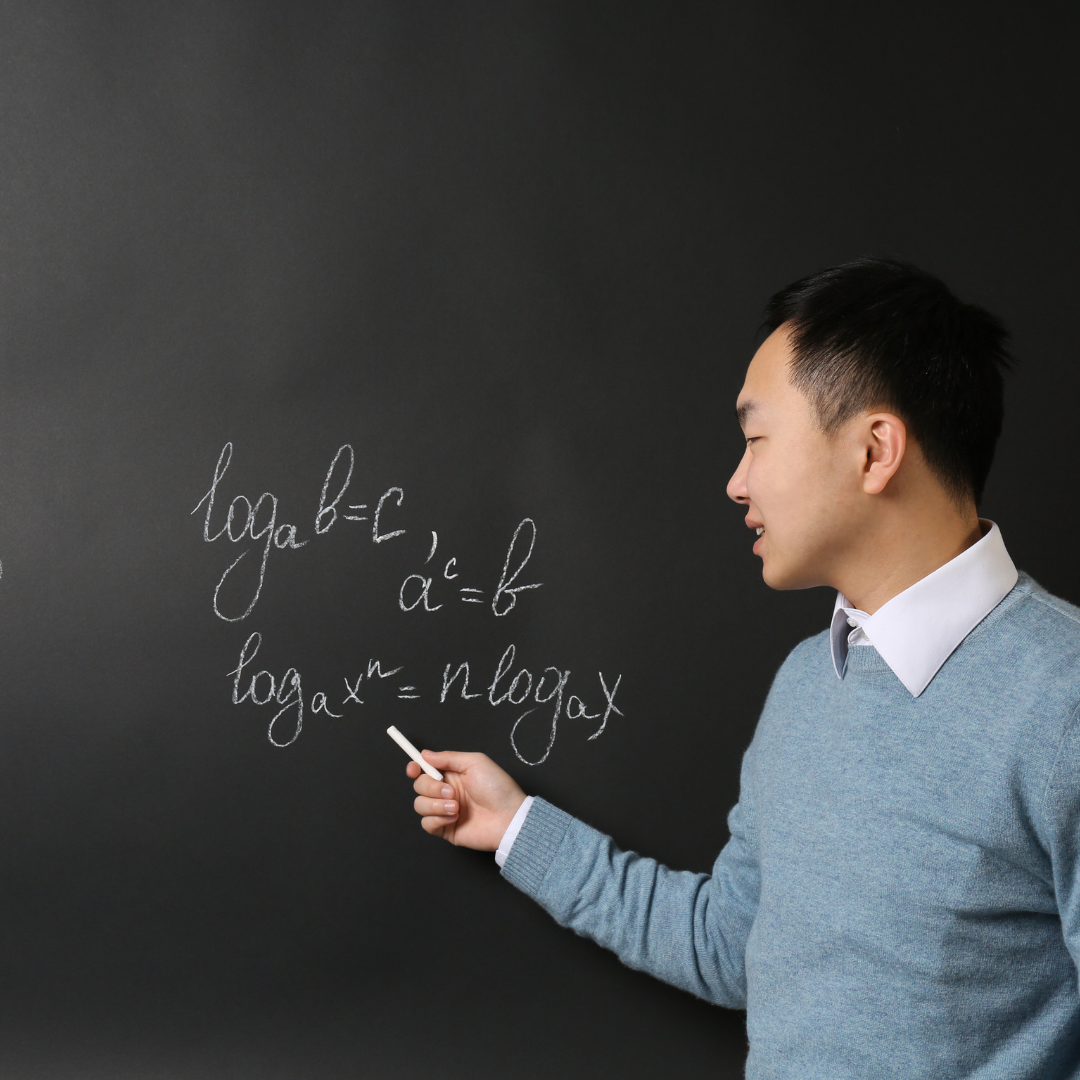 logₐ b = c
aᶜ = b
logₐ xⁿ = n logₐ x